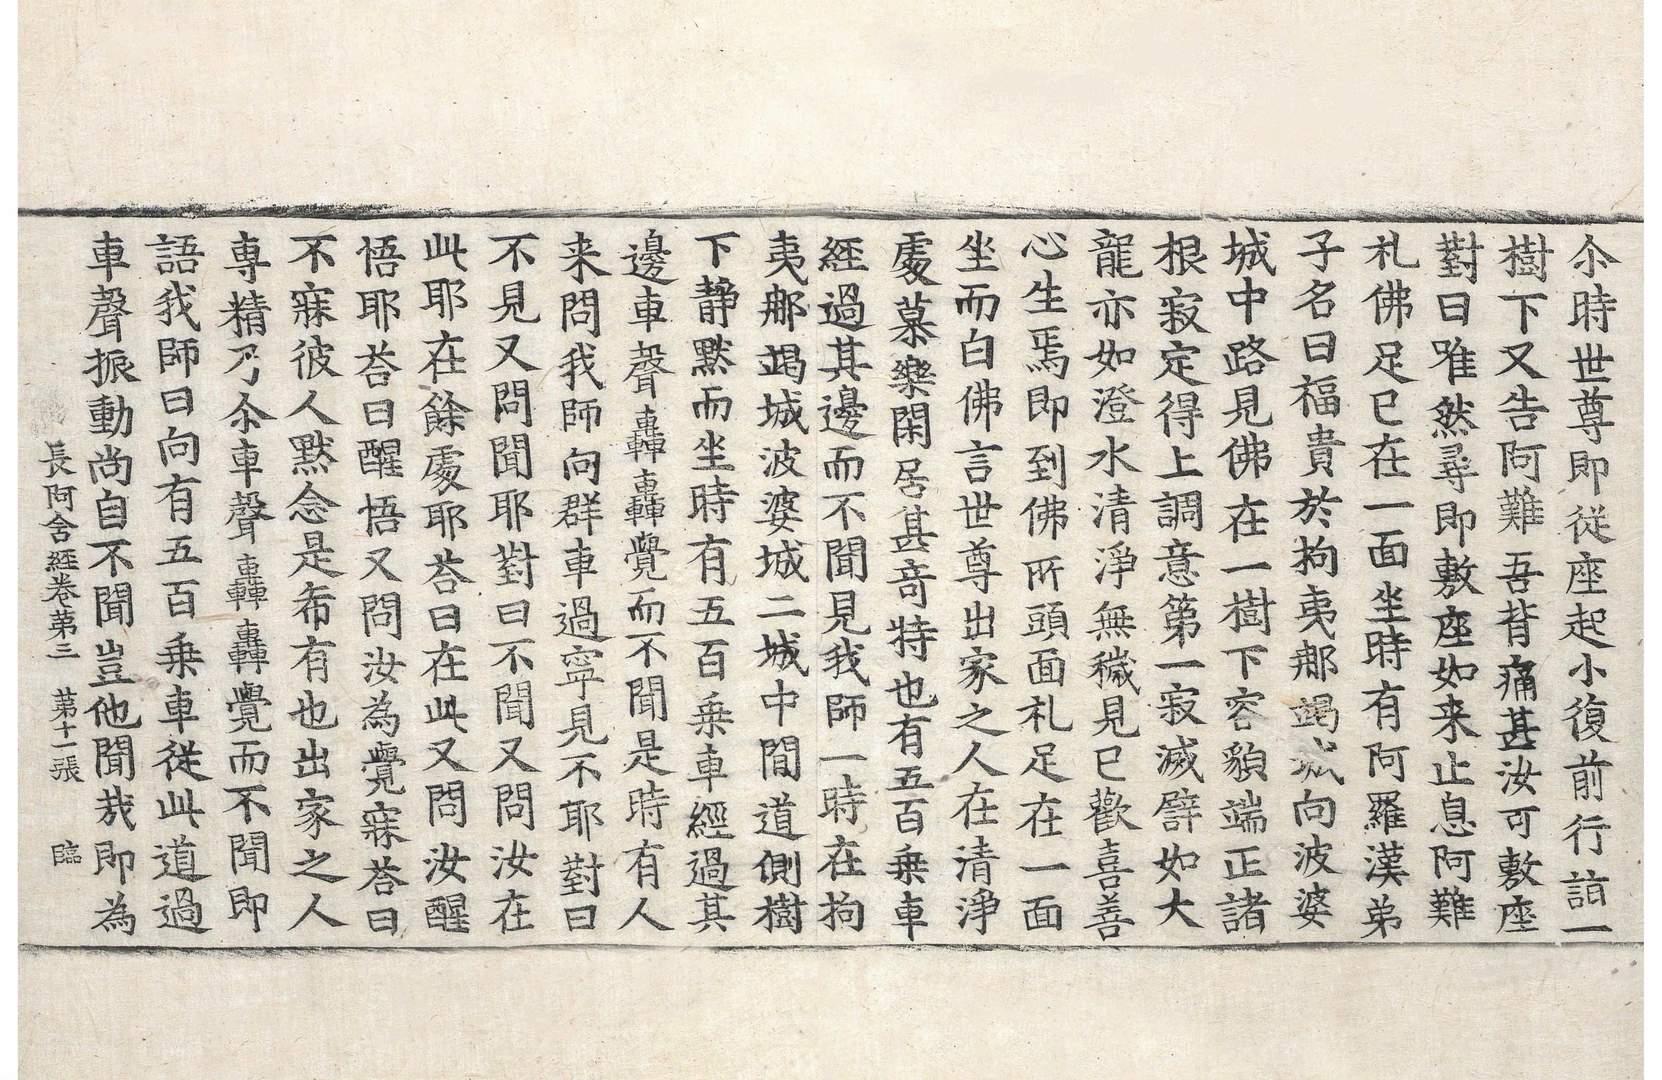 尒時世尊即従座起小復前行詣一
樹下又告阿難吾背痛甚汝可敷座
對曰唯然尋即敷座如来止息阿難
礼佛足已在一面坐時有阿羅漢弟
子名曰福貴於拘夷那竭城向波婆
城中路見佛在一樹下容貌端正諸
根寂定得上調意第一寂滅譬如大
龍亦如澄水清淨無穢見已歡喜善
心生焉即到佛所頭面礼足在一面
坐而白佛言世尊出家之人在清淨
處慕樂閑居甚奇特也有五百乗車
經過其邊而不聞見我師一時在拘
夷那竭城波婆城二城中間道側樹
下静黙而坐時有五百乗車經過其
邊車聲轟轟轟轟覺而不聞是時有人
来問我師向群車過寧見不耶對曰
不見又問聞耶對曰不聞又問汝在
此耶在餘處耶荅曰在此又問汝醒
悟耶荅曰醒悟又問汝為覺寐荅曰
不寐彼人黙念是希有也出家之人
専精乃尒車聲轟轟轟轟覺而不聞即
語我師曰向有五百乗車従此道過
車聲振動尚自不聞豈他聞㢤即為
長阿含經卷苐三 苐十一張 臨